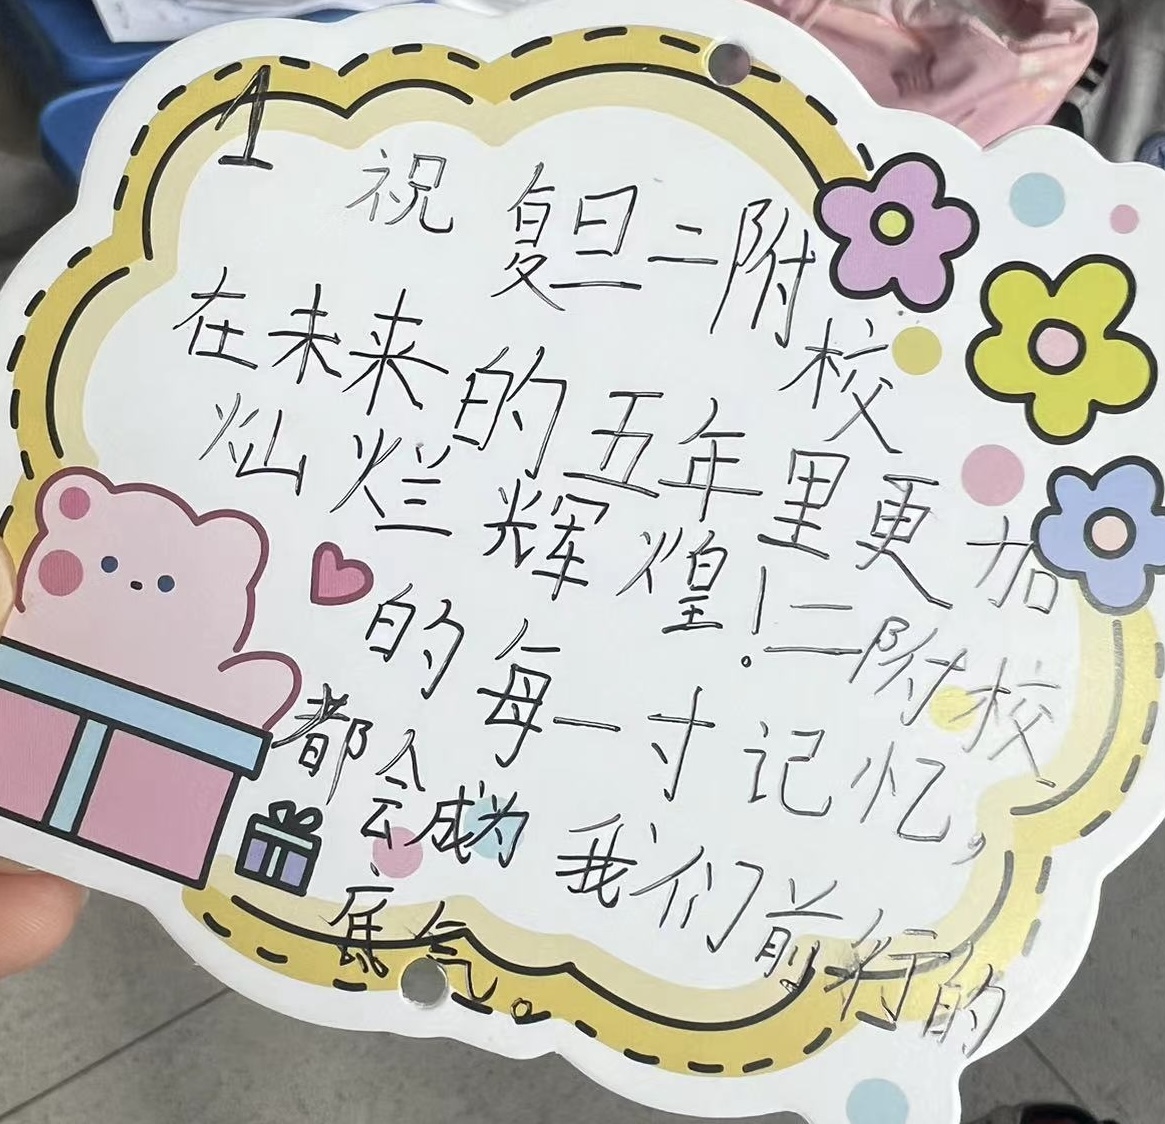 1
祝复旦二附校
在未来的五年里更加
灿烂辉煌!二附校
的每一寸记忆,
都会成为我们前行的
底气。